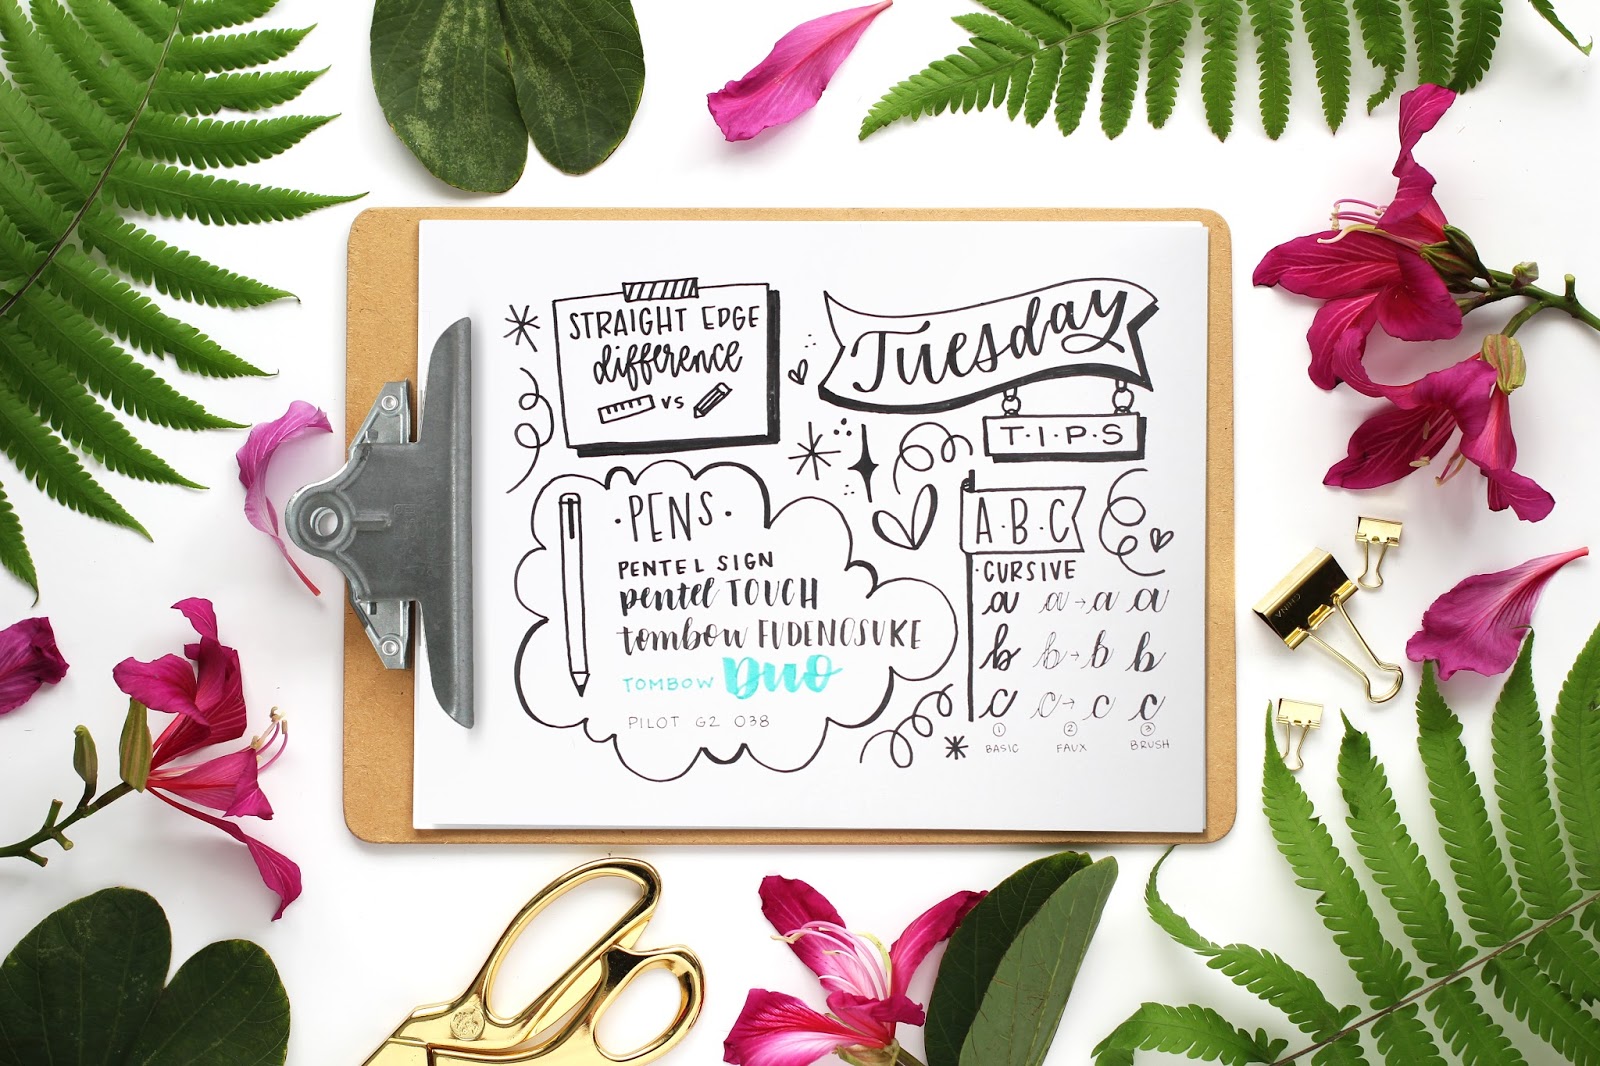 STRAIGHT EDGE
difference
VS
Tuesday
T·I·P·S
·PENS·
PENTEL SIGN
pentel TOUCH
tombow FUDENOSUKE
TOMBOW DUO
PILOT G2 038
A·B·C
·CURSIVE
a a→a a
b b→b b
c c→c c
1 2 3
BASIC FAUX BRUSH
CHINA